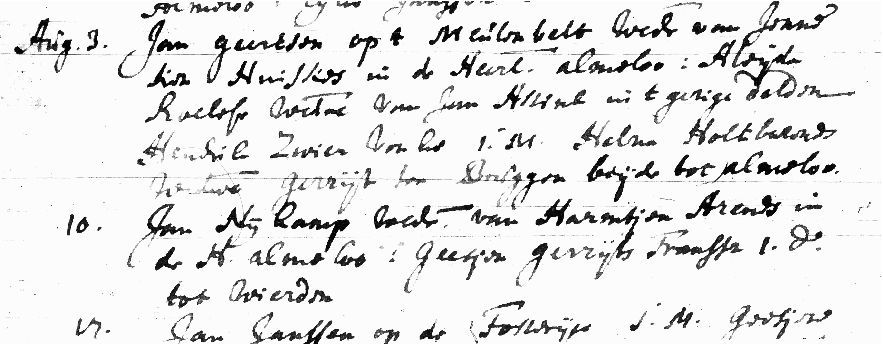 Aug. 3. Jan geertsen op t Meulenbelt Wedr van Jenne
ken Huiskes in de Heerl. almeloo : Aleyda
Roelofs Wedue van Jan Assink in t gerigt Delden
Hendrik Zwier Vonke J. M. Helena Holtbarends
Weduwe Gerryt ten Bruggen beyde tot almeloo.
10. Jan Nykamp Wedr. van Harmtjen Arends in
de H. almeloo : Geesjen gerryts Franssen J. D.
tot Wierden
17. Jan Janssen op de J. M. Geesjen